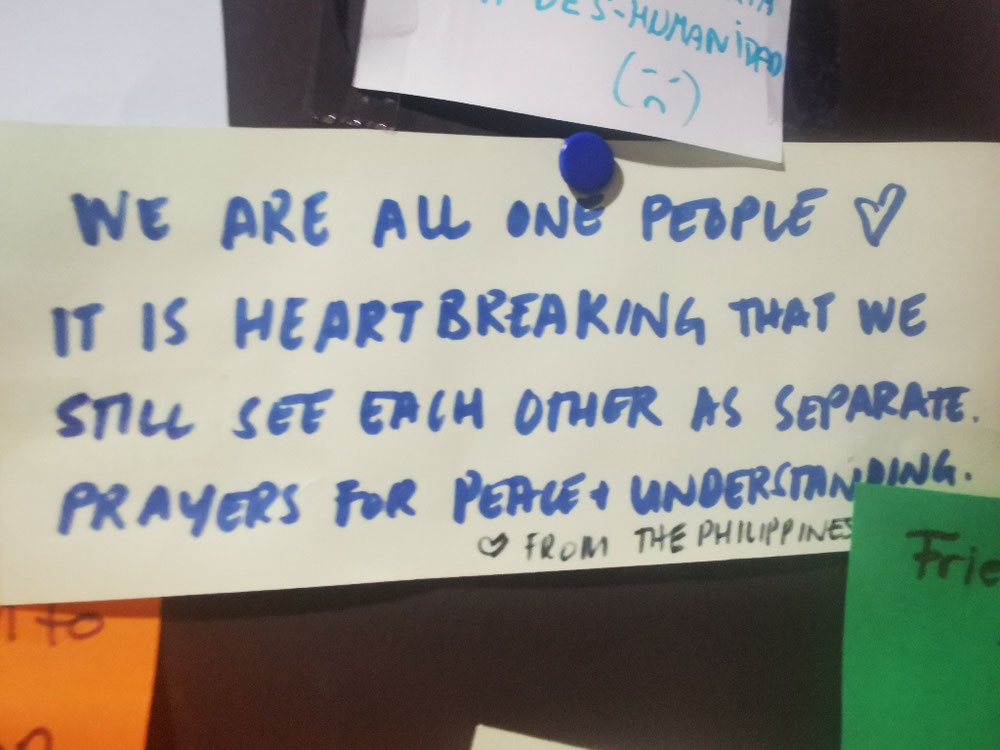 DES-HUMANIDAD
WE ARE ALL ONE PEOPLE ♡
IT IS HEARTBREAKING THAT WE
STILL SEE EACH OTHER AS SEPARATE.
PRAYERS FOR PEACE + UNDERSTANDING.
♡ FROM THE PHILIPPINES
Frie
to